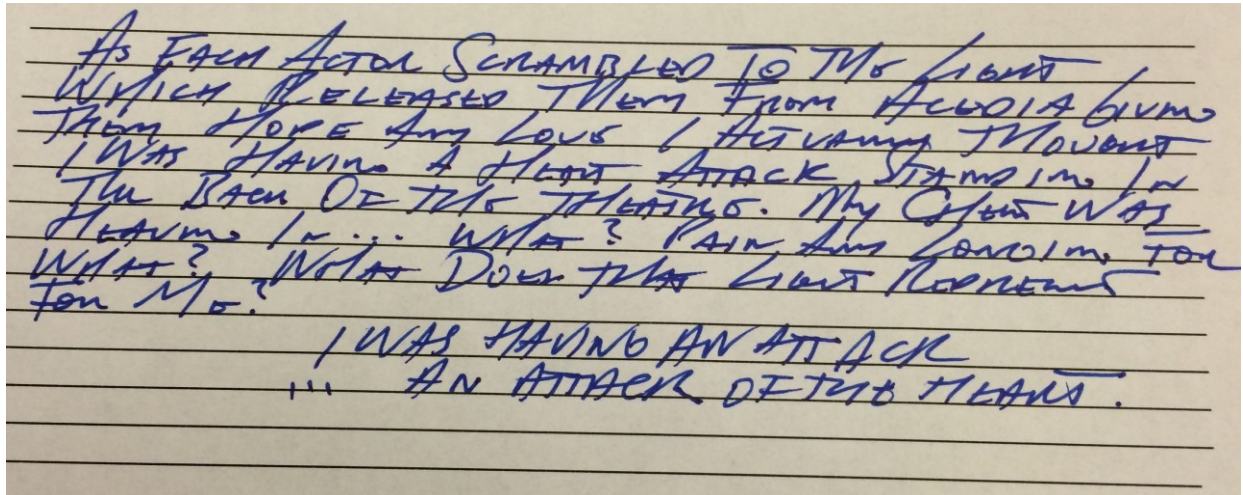 As Each Actor Scrambled To The Light
Which Released Them From Acedia Giving
Them Hope And Love I Actually Thought
I Was Having A Heart Attack Standing In
The Back Of The Theatre. My Chest Was
Heaving In ... What? Pain And Longing For
What? What Does That Light Represent
For Me?
I WAS HAVING AN ATTACK
... AN ATTACK OF THE HEART.